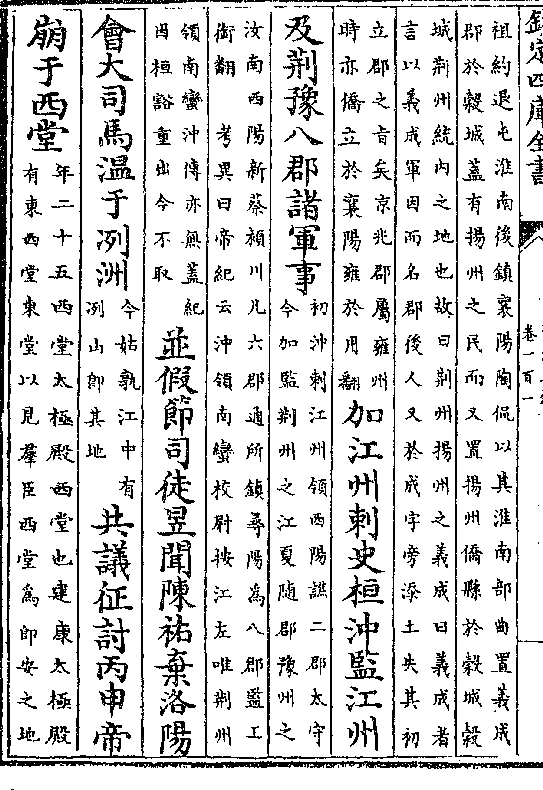 欽定四庫全書
卷一百一
祖約退屯淮南後鎮襄陽陶侃以其淮南部曲置義成
郡於榖城蓋有揚州之民而又置揚州僑縣於榖城榖
城荆州統内之地也故曰荆州揚州之義成曰義成者
言以義成軍因而名郡後人又於成字旁添土失其初
立郡之㫖矣京兆郡屬雍州
時亦僑立於襄陽雍於用翻
加江州刺史桓沖監江州
及荆豫八郡諸軍事
初沖刺江州領西陽譙二郡太守
今加監荆州之江夏隨郡豫州之
汝南西陽新蔡潁川凡六郡通所鎮尋陽為八郡監工
銜翻 考異曰帝紀云沖領南蠻校尉按江左唯荆州
領南蠻沖傳亦無蓋紀
因桓豁重出今不取
並假節司徒昱聞陳祐棄洛陽
會大司馬温于洌洲
今姑孰江中有
洌山即其地
共議征討丙申帝
崩于西堂
年二十五西堂太極殿西堂也建康太極殿
有東西堂東堂以見羣臣西堂為即安之地